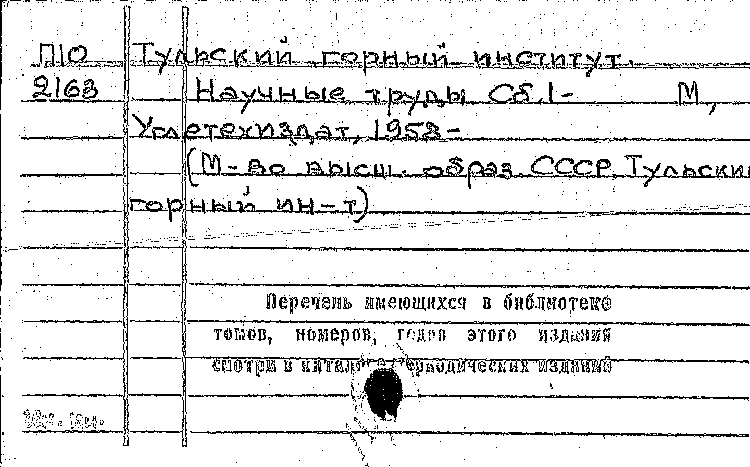 П10 Тульский горный институт.
2163 Научные труды Сб.1- М,
Углетехиздат, 1958-
(М-во высш. образ. СССР. Тульский
горный ин-т)
Перечень имеющихся в библиотеке
томов, номеров, годов этого издания
смотри в каталоге периодических изданий